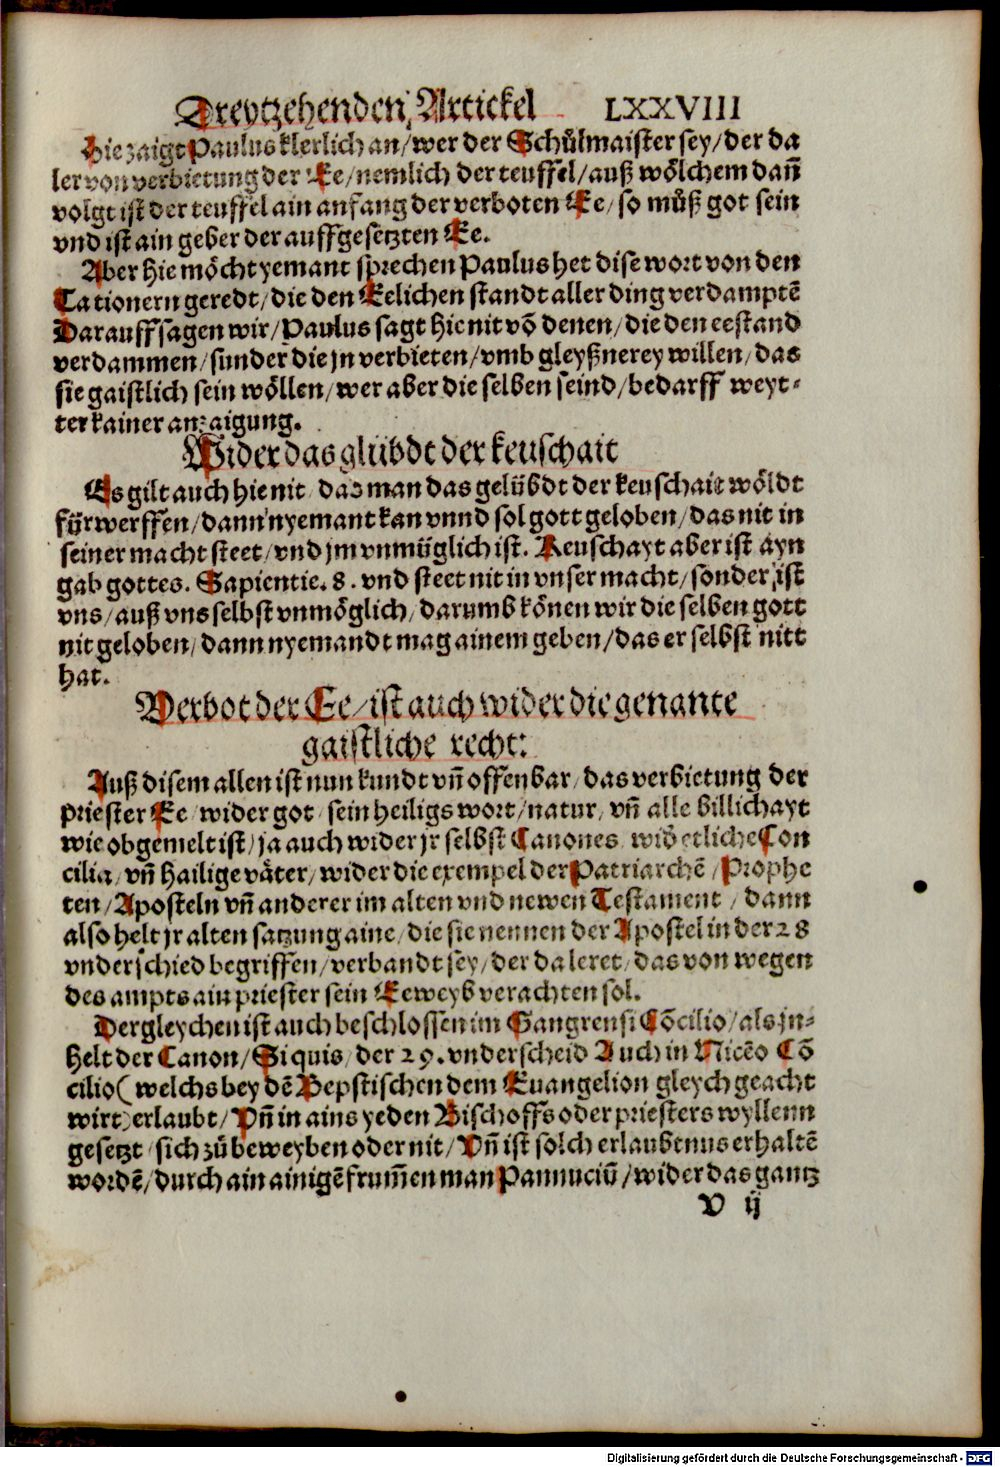 Dreytzehenden Artickel LXXVIII
Hie zaigt Paulus klerlich an/ wer der Schůlmaister sey/ der da
ler von verbietung der Ee/ nemlich der teuffel/ auß wölchem dañ
volgt ist der teuffel ain anfang der verboten Ee/ so můß got sein
vnd ist ain geber der auffgesetzten Ee.
Aber hie möcht yemant sprechen Paulus het dise wort von den
Tationern geredt/ die den Eelichen standt aller ding verdamptē
Darauff sagen wir/ Paulus sagt hie nit vō denen/ die den eestand
verdammen/ sunder die jn verbieten/ vmb gleyßnerey willen/ das
sie gaistlich sein wöllen/ wer aber die selben seind/ bedarff weyt-
ter kainer anzaigung.
Wider das glübdt der keuschait
Es gilt auch hie nit/ das man das gelübdt der keuschait wöldt
fürwerffen/ dann nyemant kan vnnd sol gott geloben/ das nit in
seiner macht steet/ vnd jm vnmüglich ist. Keuschayt aber ist ayn
gab gottes. Sapientie. 8. vnd steet nit in vnser macht/ sonder ist
vns/ auß vns selbst vnmöglich/ darumb könen wir die selben gott
nit geloben/ dann nyemandt mag ainem geben/ das er selbst nitt
hat.
Verbot der Ee/ ist auch wider die genante
gaistliche recht:
Auß disem allen ist nun kundt vñ offenbar/ das verbietung der
priester Ee/ wider got/ sein heiligs wort/ natur/ vñ alle billichayt
wie obgemelt ist/ ja auch wider jr selbst Canones/ wid̄ etliche Con
cilia/ vñ hailige väter/ wider die exempel der Patriarchē/ Prophe
ten/ Aposteln vñ anderer im alten vnd newen Testament/ dann
also helt jr alten satzung aine/ die sie nennen der Apostel in der 28
vnderschied begriffen/ verbandt sey/ der da leret/ das von wegen
des ampts ain priester sein Eeweyb verachten sol.
Dergleychen ist auch beschlossen im Gangrensi Cōcilio/ als jn-
helt der Canon/ Si quis/ der 29. vnderscheid Auch in Nicēo Cō
cilio (welchs bey dē Bepstischen dem Euangelion gleych geacht
wirt) erlaubt/ Vñ in ains yeden Bischoffs oder priesters wyllenn
gesetzt/ sich zů beweyben oder nit/ Vñ ist solch erlaubtnus erhaltē
wordē/ durch ain ainigē frum̄en man Pannuciū/ wider das gantz
V ij
Digitalisierung gefördert durch die Deutsche Forschungsgemeinschaft - DFG